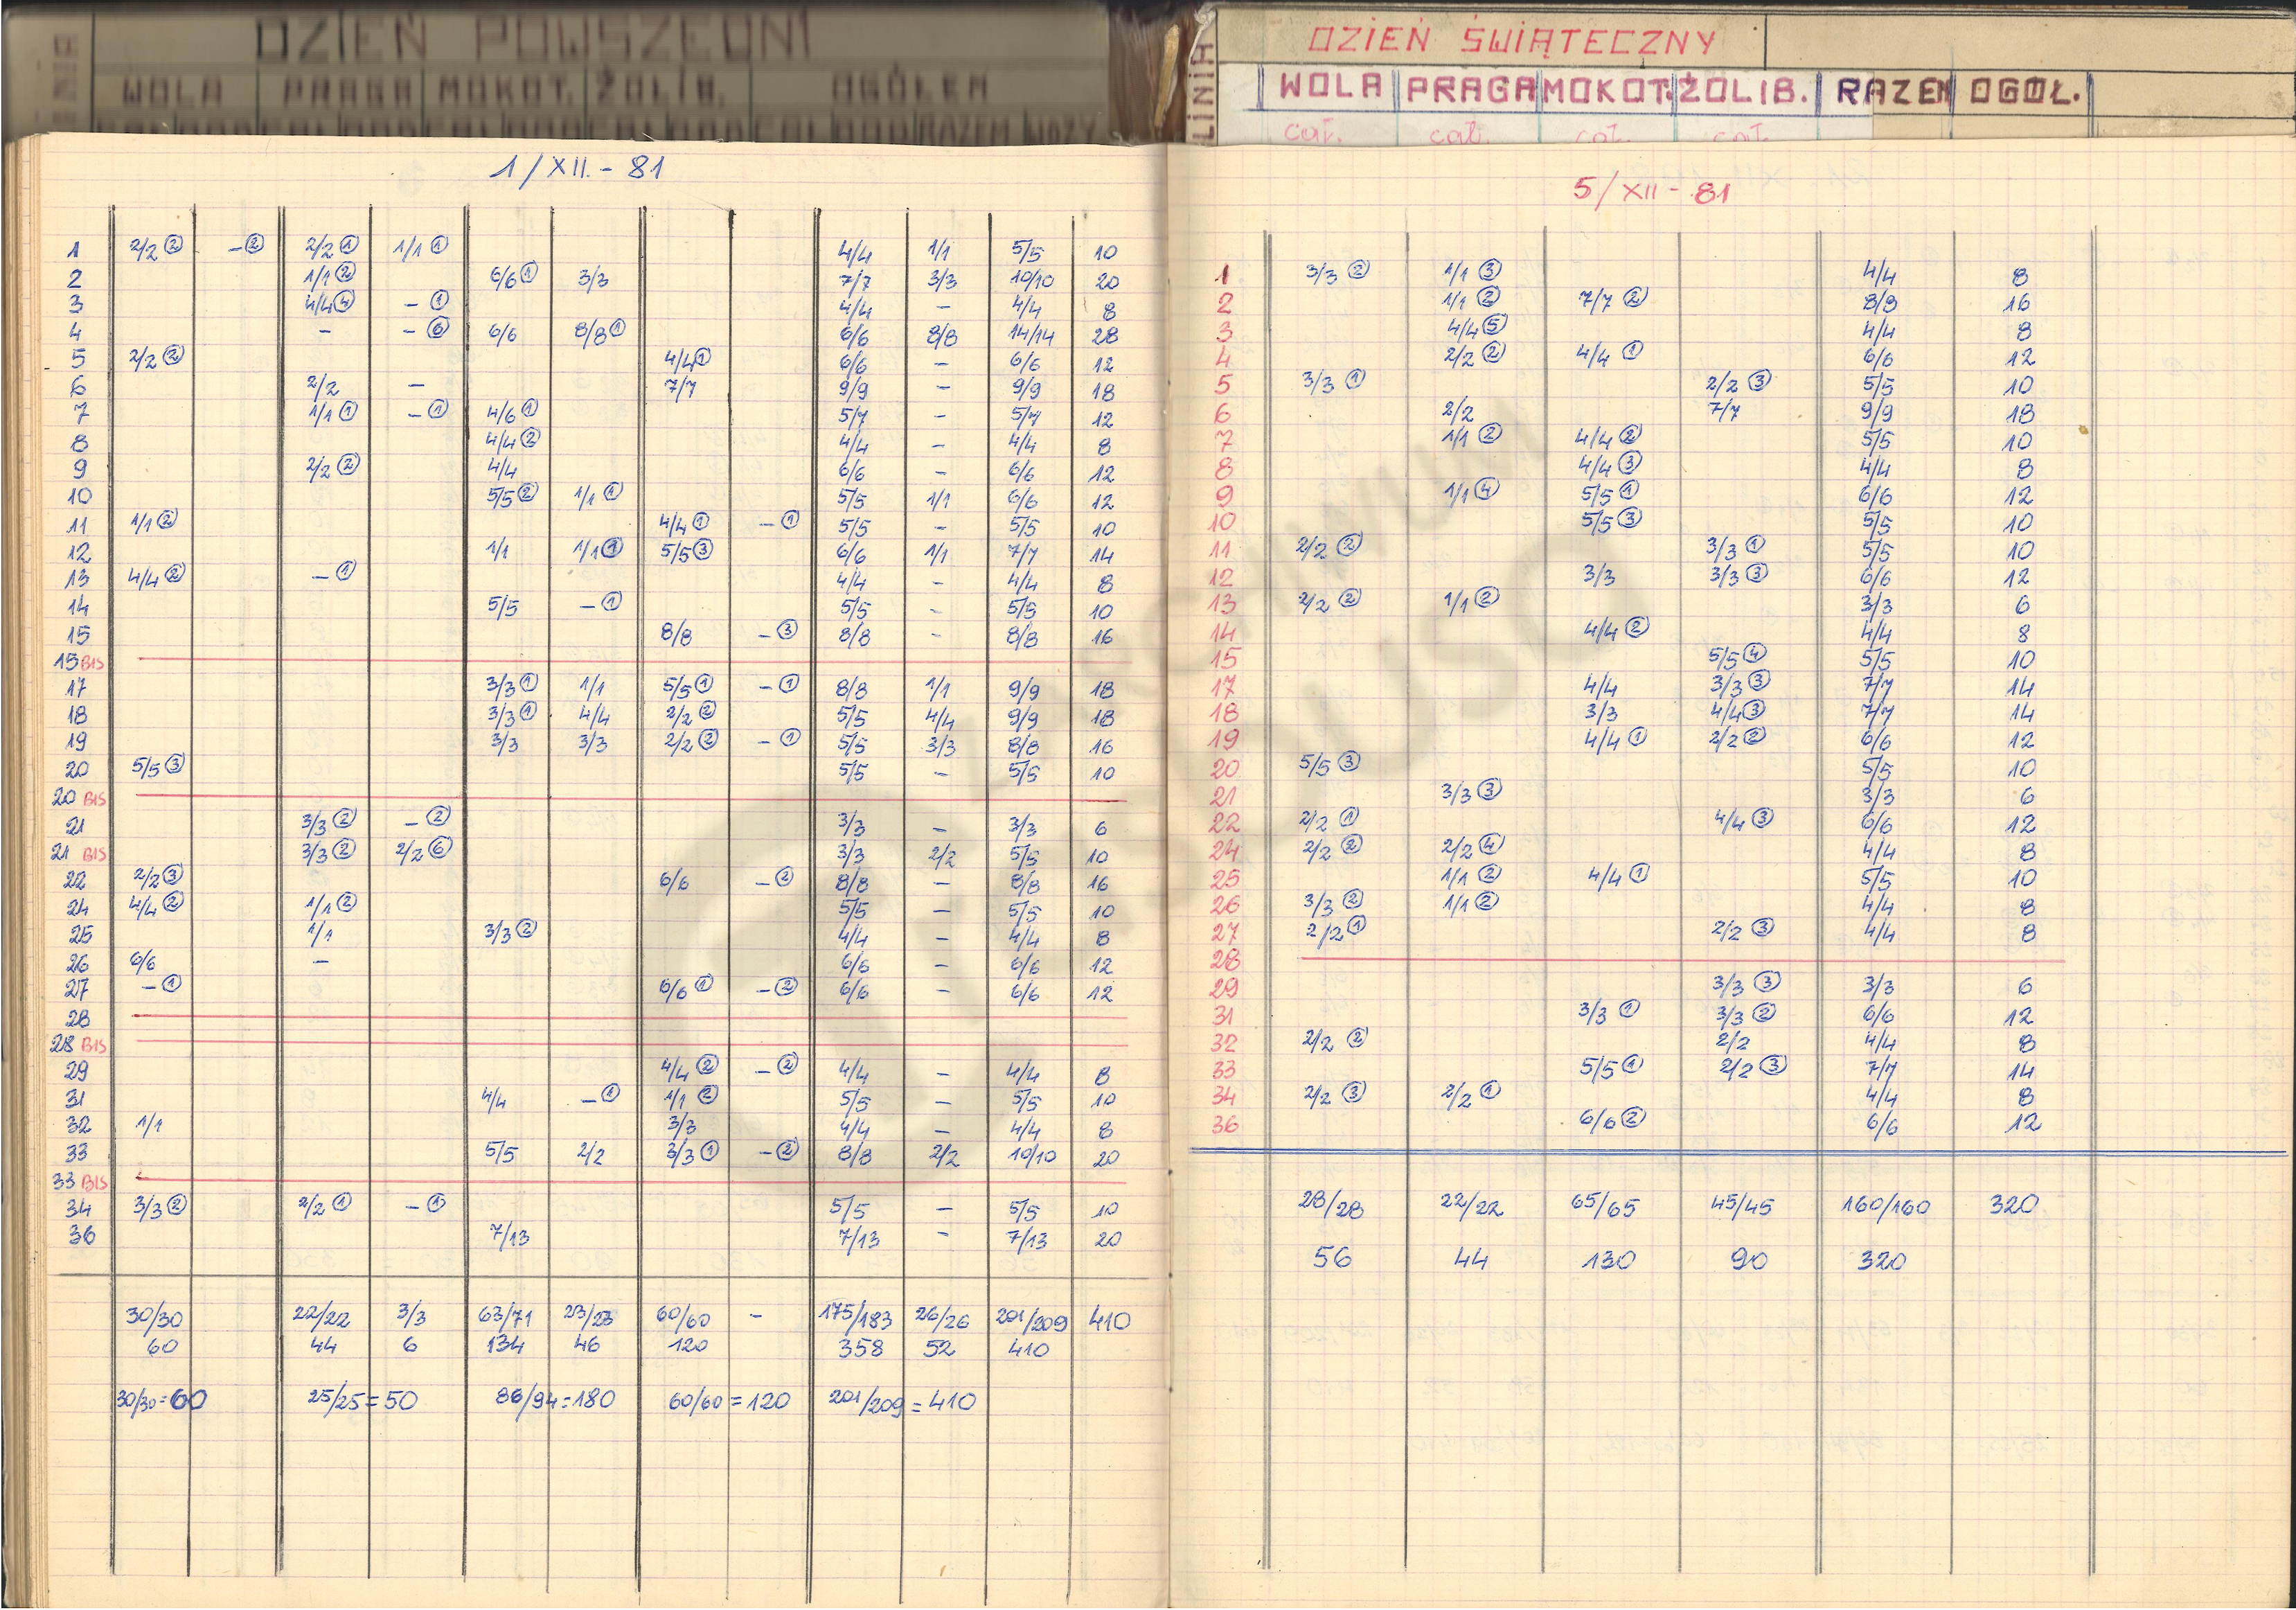 DZIEŃ POWSZEDNI
WOLA PRAGA MOKOT. ŻOLIB. OGÓŁEM
1/XII.-81
1 2/2 ② -② 2/2 ① 1/1 ① 4/4 1/1 5/5 10
2 1/1 ② 6/6 ① 3/3 7/7 3/3 10/10 20
3 4/4 ④ - ① 4/4 - 4/4 8
4 - - ⑥ 6/6 8/8 ① 6/6 8/8 14/14 28
5 2/2 ② 4/4 ① 6/6 - 6/6 12
6 2/2 - 7/7 9/9 - 9/9 18
7 1/1 ① - ① 4/6 ① 5/7 - 5/7 12
8 4/4 ② 4/4 - 4/4 8
9 2/2 ② 4/4 6/6 - 6/6 12
10 5/5 ② 1/1 ① 5/5 1/1 6/6 12
11 1/1 ② 4/4 ① - ① 5/5 - 5/5 10
12 1/1 1/1 ① 5/5 ③ 6/6 1/1 7/7 14
13 4/4 ② - ① 4/4 - 4/4 8
14 5/5 - ① 5/5 - 5/5 10
15 8/8 - ③ 8/8 - 8/8 16
15 BIS
17 3/3 ① 1/1 5/5 ① - ① 8/8 1/1 9/9 18
18 3/3 ① 4/4 2/2 ② 5/5 4/4 9/9 18
19 3/3 3/3 2/2 ② - ① 5/5 3/3 8/8 16
20 5/5 ③ 5/5 - 5/5 10
20 BIS
21 3/3 ② - ② 3/3 - 3/3 6
21 BIS 3/3 ② 2/2 ⑥ 3/3 2/2 5/5 10
22 2/2 ③ 6/6 - ② 8/8 - 8/8 16
24 4/4 ② 1/1 ② 5/5 - 5/5 10
25 1/1 3/3 ② 4/4 - 4/4 8
26 6/6 - 6/6 - 6/6 12
27 - ① 6/6 ① - ② 6/6 - 6/6 12
28
28 BIS
29 4/4 ② - ② 4/4 - 4/4 8
31 4/4 - ① 1/1 ② 5/5 - 5/5 10
32 1/1 3/3 4/4 - 4/4 8
33 5/5 2/2 3/3 ① - ② 8/8 2/2 10/10 20
33 BIS
34 3/3 ② 2/2 ① - ① 5/5 - 5/5 10
36 7/13 7/13 - 7/13 20
30/30 22/22 3/3 63/71 23/23 60/60 - 175/183 26/26 201/209 410
60 44 6 134 46 120 358 52 410
30/30=60 25/25=50 86/94=180 60/60=120 201/209=410
LINIA
DZIEŃ ŚWIĄTECZNY
WOLA PRAGA MOKOT. ŻOLIB. RAZEM OGÓŁ.
cał. cał. cał. cał.
5/XII-81
1 3/3 ② 1/1 ③ 4/4 8
2 1/1 ② 7/7 ② 8/8 16
3 4/4 ⑤ 4/4 8
4 2/2 ② 4/4 ① 6/6 12
5 3/3 ① 2/2 ③ 5/5 10
6 2/2 7/7 9/9 18
7 1/1 ② 4/4 ② 5/5 10
8 4/4 ③ 4/4 8
9 1/1 ④ 5/5 ① 6/6 12
10 5/5 ③ 5/5 10
11 2/2 ② 3/3 ① 5/5 10
12 3/3 3/3 ③ 6/6 12
13 2/2 ② 1/1 ② 3/3 6
14 4/4 ② 4/4 8
15 5/5 ④ 5/5 10
17 4/4 3/3 ③ 7/7 14
18 3/3 4/4 ③ 7/7 14
19 4/4 ① 2/2 ② 6/6 12
20 5/5 ③ 5/5 10
21 3/3 ③ 3/3 6
22 2/2 ① 4/4 ③ 6/6 12
24 2/2 ② 2/2 ④ 4/4 8
25 1/1 ② 4/4 ① 5/5 10
26 3/3 ② 1/1 ② 4/4 8
27 2/2 ① 2/2 ③ 4/4 8
28
29 3/3 ③ 3/3 6
31 3/3 ① 3/3 ② 6/6 12
32 2/2 ② 2/2 4/4 8
33 5/5 ① 2/2 ③ 7/7 14
34 2/2 ③ 2/2 ① 4/4 8
36 6/6 ② 6/6 12
28/28 22/22 65/65 45/45 160/160 320
56 44 130 90 320